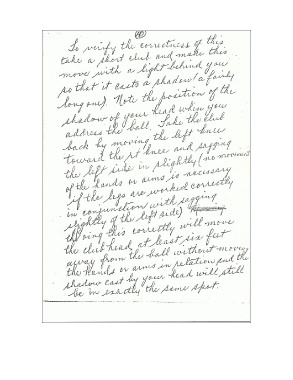 To verify the correctness of this
take a short club and make this
move with a light behind you
so that it casts a shadow (a fairly
long one). Note the position of the
shadow of your head when you
address the ball. Take the club
back by moving the left knee
toward the rt knee and sagging
the left side in slightly (no movement
of the hands or arms is necessary
if the legs are worked correctly
in conjunction with sagging
slightly of the left side)
Doing this correctly will move
the club head at least six feet
away from the ball without moving
the hands or arms in relation and the
shadow cast by your head will still
be in exactly the same spot.